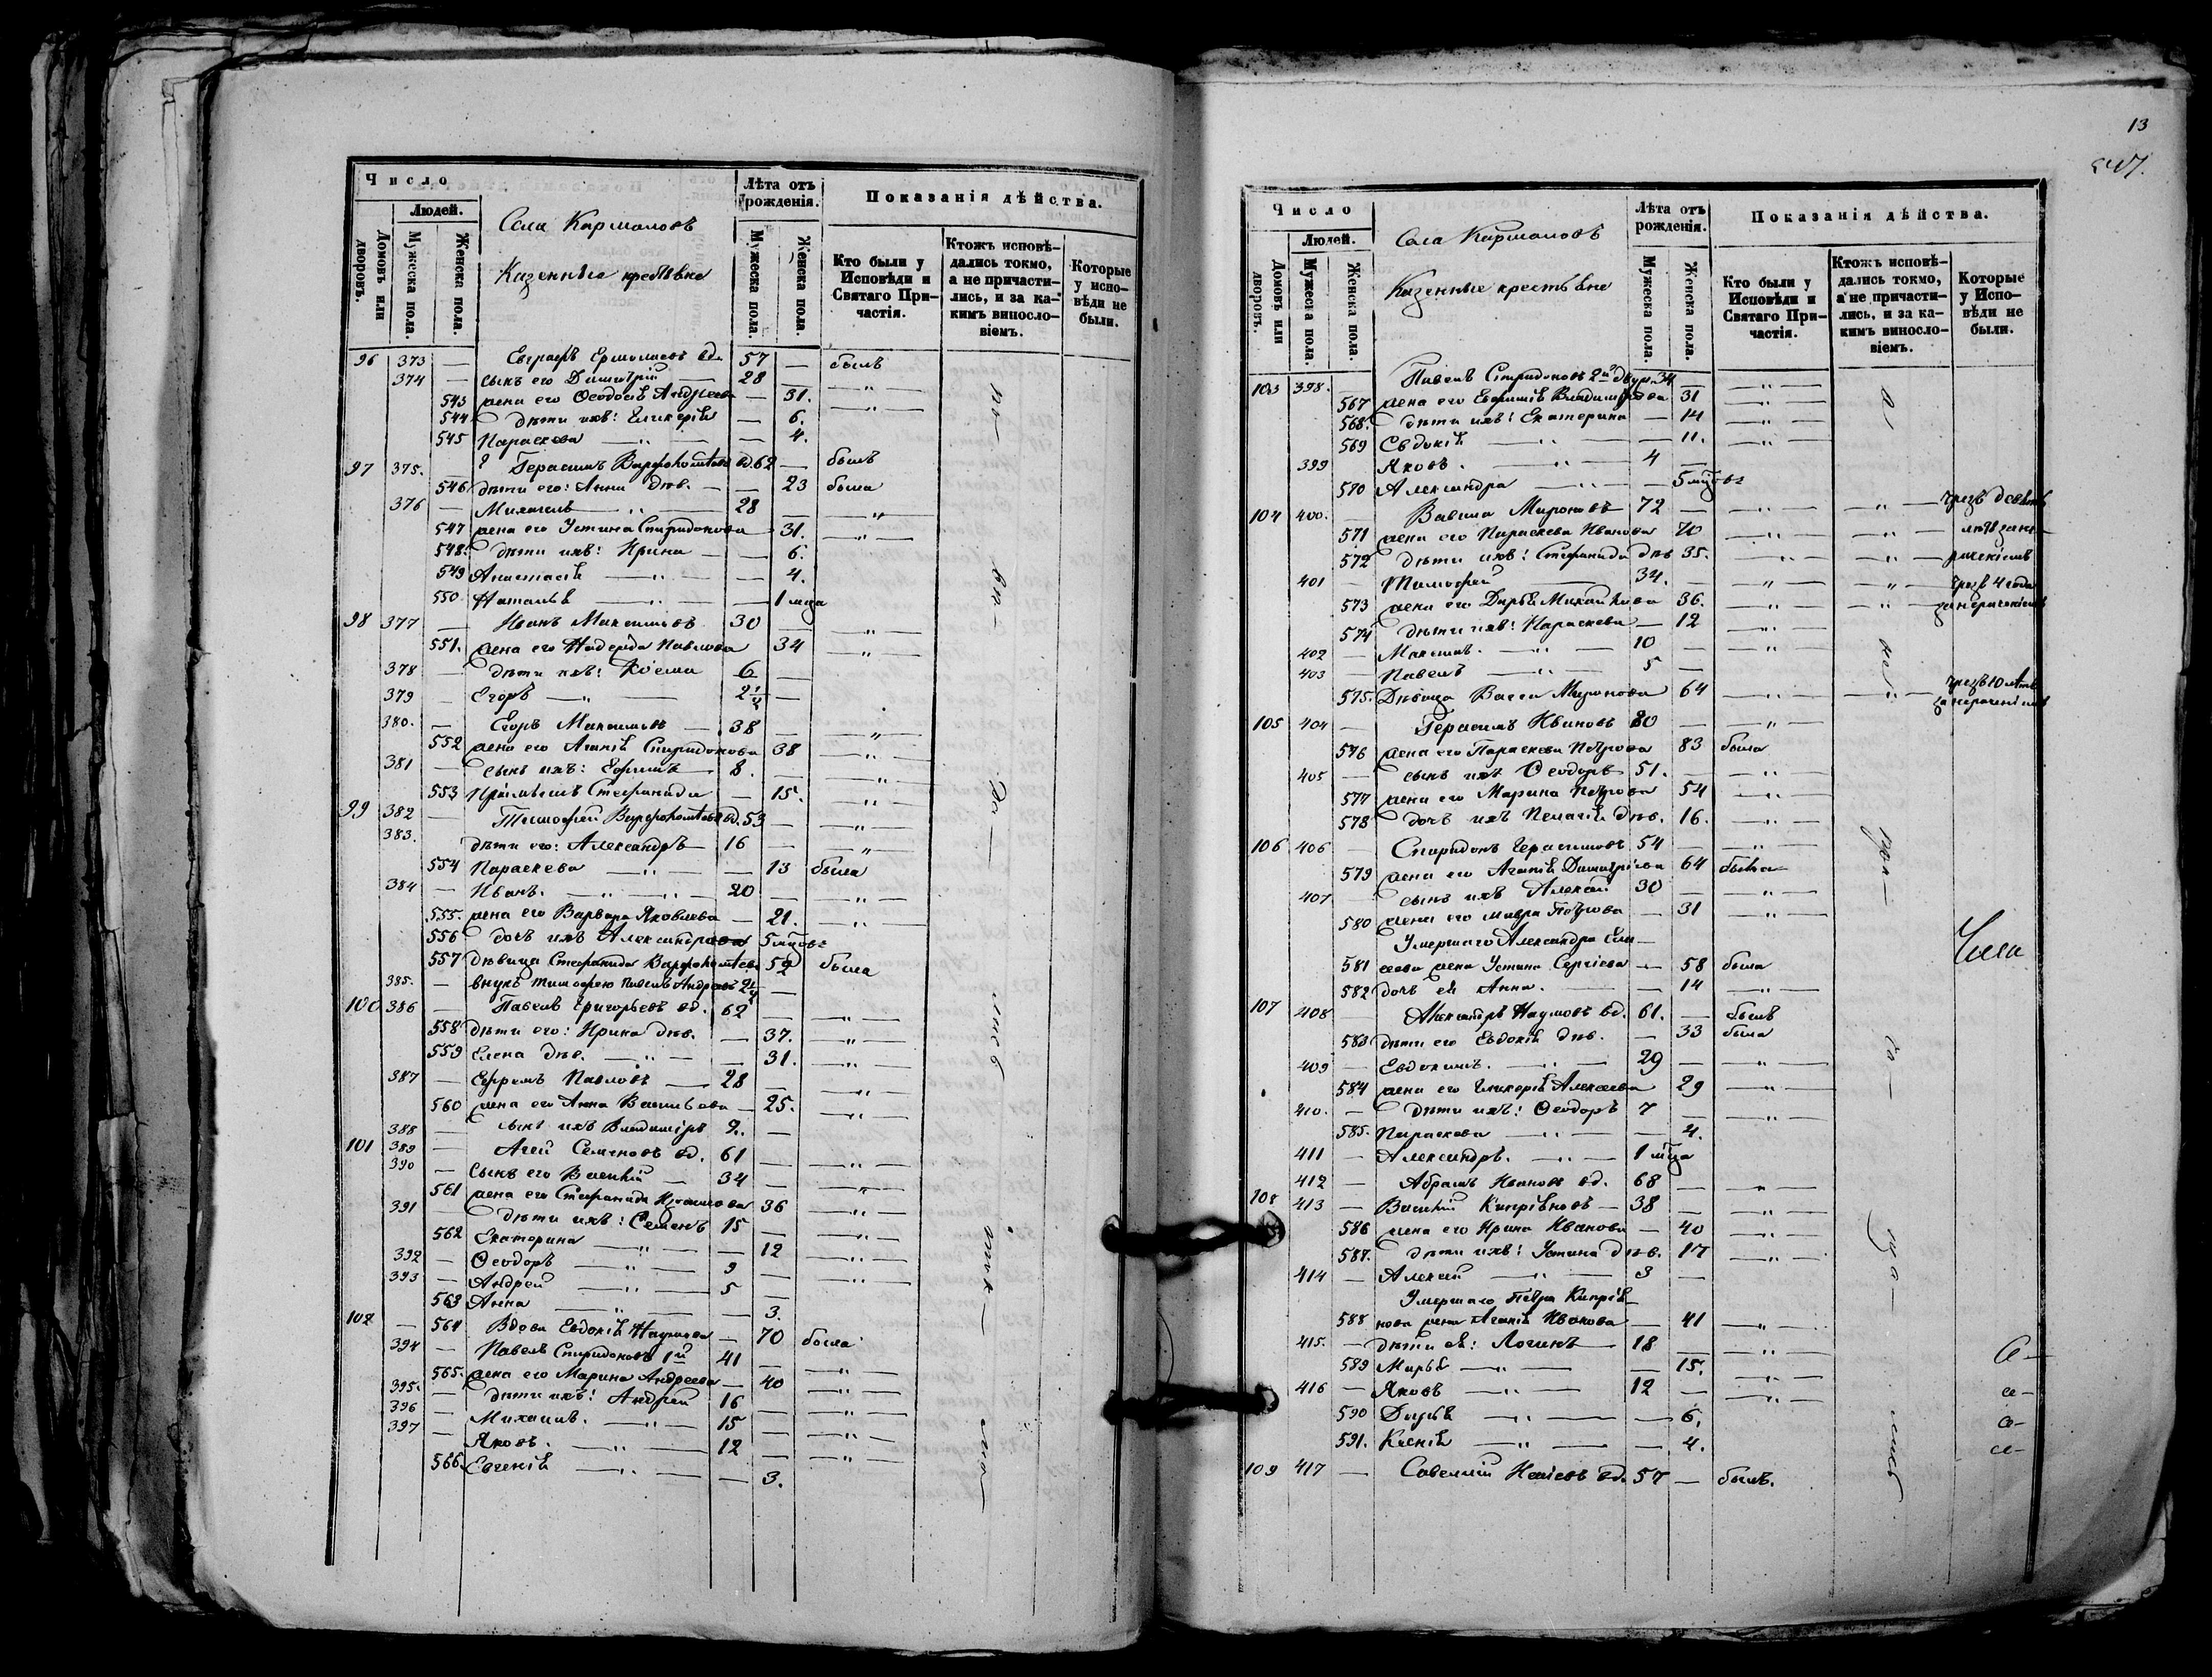 Число
Людей.
Домовъ или дворовъ.
Мужеска пола.
Женска пола.
Села
Казенные
Лѣта отъ рожденія.
Мужеска пола.
Женска пола.
Показанія дѣйства.
Кто были у Исповѣди и Святаго Причастія.
Ктожъ исповѣдались токмо, а не причастились, и за какимъ винословіемъ.
Которые у исповѣди не были.
96 373 — вд. 57 — былъ
374 — сынъ его Димитрій — 28 — „ —
543 жена его Ѳеодосія Андреева — 31. — „ —
544 дѣти ихъ: Гликерія — 6.
545 Параскева — „ — 4.
97 375. — Герасимъ вд. 62 — былъ
546 дѣти его: Анна дѣв. — 23 была
376 — Михаилъ — „ — 28 — „ —
547 жена его Устина Спиридонова — 31. — „ —
548. дѣти ихъ: Ирина — 6.
549 Анастасія — „ — 4.
550 Наталья — „ — 1 мца
98 377 — Иванъ Максимовъ 30 — „ —
551. жена его Надежда Павлова 34 — „ —
378 — дѣти ихъ: Косма 6 —
379 — Егоръ — „ — 2
380. — Егоръ Максимовъ — 38 — „ —
552 жена его Агафія Спиридонова 38 — „ —
381 — сынъ ихъ: Ефимъ 8. — „ —
553 Стефанида — 15. — „ —
99 382 — Тимофей вд. 53 — „ —
383. дѣти его: Александръ — 16 — „ —
554 Параскева — „ — 13 была
384 — Иванъ. — „ — 20 — „ —
555. жена его Варвара Яковлева — 21. — „ —
556 дочь ихъ Александра 5
557 дѣвица Стефанида 52 была
385. — внукъ Тимофею Павелъ 2
100 386 — Павелъ Григорьевъ вд. 62 — „ —
558 дѣти его: Ирина дѣв. — 37. — „ —
559 Елена дѣв. — „ — 31. — „ —
387 — Ефремъ Павловъ — 28 — „ —
560 жена его Анна Васильева — 25. — „ —
388 — сынъ ихъ Владиміръ 2. —
101 389 — Агей Семеновъ вд. 61 — „ —
390 — сынъ его Василій — 34 — „ —
561 жена его Стефанида 36 — „ —
391 — дѣти ихъ: Семенъ 15 — „ —
562 Екатерина — „ — 12 — „ —
392 — Ѳеодоръ — „ — 9 — „ —
393 — Андрей — „ — 5 —
563 Анна — „ — 3.
102 — 564 Вдова Евдокія Наумова — 70 была
394 — Павелъ Спиридоновъ 1й 41 — „ —
565. жена его Марина Андреева — 40 — „ —
395. — дѣти ихъ: Андрей 16 — „ —
396 — Михаилъ. — „ — 15 — „ —
397 — Яковъ. — „ — 12 — „ —
566. Евгенія — „ — 3.
13
Число
Людей.
Домовъ или дворовъ.
Мужеска пола.
Женска пола.
Села
Казенные
Лѣта отъ рожденія.
Мужеска пола.
Женска пола.
Показанія дѣйства.
Кто были у Исповѣди и Святаго Причастія.
Ктожъ исповѣдались токмо, а не причастились, и за какимъ винословіемъ.
Которые у Исповѣди не были.
103 398. Павелъ Спиридоновъ 2й 34 — „ —
567 жена его Евфимія 31 — „ —
568. дѣти ихъ: Екатерина — 14 — „ —
569 Евдокія — „ — 11. — „ —
399 Яковъ. — „ — 4 —
570 Александра — „ — 5
104 400. Вавила Мироновъ 72 — „ — — „ — чрезъ
571 жена его Параскева Иванова 70 — „ — — „ —
572 дѣти ихъ: Стефанида дѣв 35. — „ — — „ —
401 — Тимофей 34. — „ — — „ — чрезъ 4 года
573 жена его Дарья Михайлова 36. — „ — — „ —
574 дѣти ихъ: Параскева — 12 — „ —
402 — Максимъ. — „ — 10 — „ —
403 — Павелъ — „ — 5 —
575. Дѣвица Васса Миронова 64 — „ — — „ — чрезъ 10 лѣтъ
105 404 — Герасимъ Ивановъ 80 — „ —
576 жена его Параскева Петрова 83 была
405 — сынъ ихъ Ѳеодоръ 51. — „ —
577 жена его Марина Петрова 54 — „ —
578 дочь ихъ Пелагія дѣв. 16. — „ —
106 406 — Спиридонъ Герасимовъ 54 — „ —
579 жена его Агафія Димитріева 64 была
407 — сынъ ихъ Алексѣй 30 — „ —
580 жена его Мавра Петрова — 31 — „ —
Умершаго Александра
581 жена Устина Сергіева — 58 была
582 дочь ея Анна. — 14 — „ —
107 408 — Александръ Наумовъ вд. 61. — былъ
583 дѣти его Евдокія дѣв. — 33 была
409 — Евдокимъ. — „ — 29 — „ —
584 жена его Гликерія Алексеева 29 — „ —
410. — дѣти ихъ: Ѳеодоръ 7 — „ —
585. Параскева — „ — 4.
411 — Александръ. — „ — 1 мца
412 — Абрамъ Ивановъ вд. 68 — „ —
108 413 — Василій Кипріяновъ — 38 — „ —
586 жена его Ирина Иванова — 40 — „ —
587. дѣти ихъ: Устина дѣв. 17 — „ —
414 — Алексѣй — „ — 3 —
Умершаго Петра Кипрія—
588 нова жена Агафія Иванова — 41 — „ —
415. — дѣти ея: Логинъ — 18 — „ —
589 Марья — „ — 15. — „ —
416 — Яковъ — „ — 12 — „ —
590 Дарья — „ — 6.
591. Ксенія — „ — 4.
109 417 — Савелій вд. 57 — былъ.